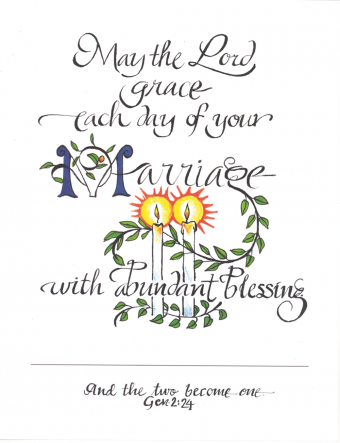 May the Lord
grace
each day of your
Marriage
with abundant Blessing
And the two become one
Gen. 2:24